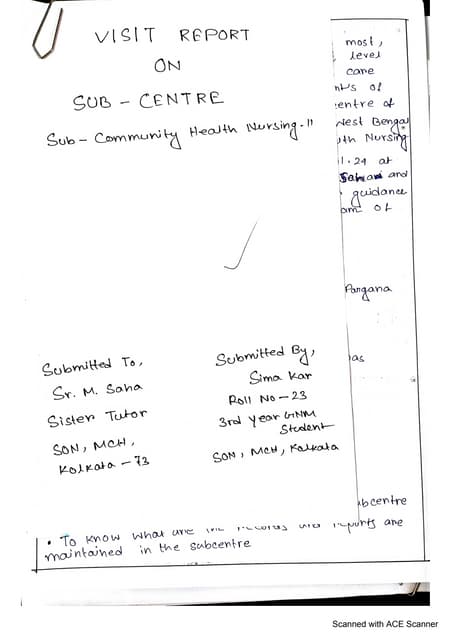 VISIT REPORT
ON
SUB - CENTRE
Sub - Community Health Nursing - II
most,
level
care
of
entre of
West Bengal
Nursing
1.24 at
and
guidance
of
Pangana
as
Submitted To,
Sr. M. Saha
Sister Tutor
SON, MCH,
Kolkata - 73
Submitted By,
Sima Kar
Roll No - 23
3rd Year GNM
Student
SON, MCH, Kolkata
bcentre
• To know what are records are
maintained in the subcentre
Scanned with ACE Scanner